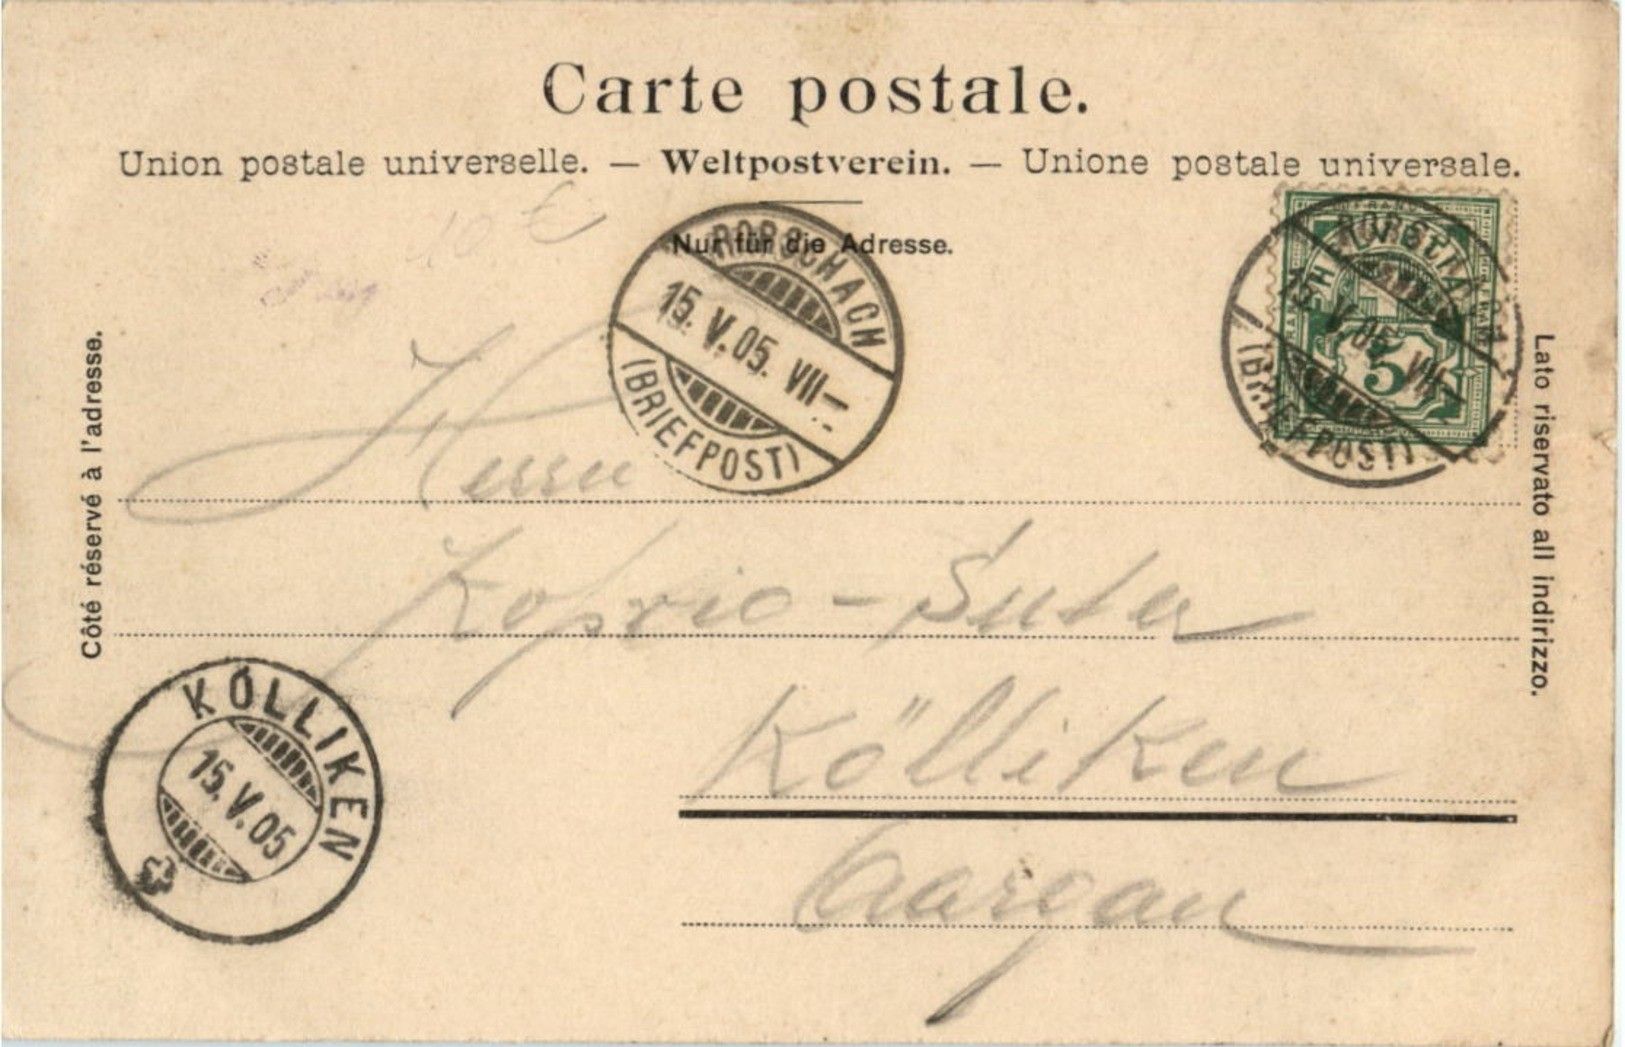 Carte postale.
Union postale universelle. — Weltpostverein. — Unione postale universale.
Nur für die Adresse.
RORSCHACH
15. V. 05. VII—
(BRIEFPOST)
RORSCHACH
15. V. 05. VII—
(BRIEFPOST)
5
10 €
Côté réservé à l'adresse.
Lato riservato all indirizzo.
Herrn
Suter
Kölliken
Aargau
KÖLLIKEN
15. V. 05